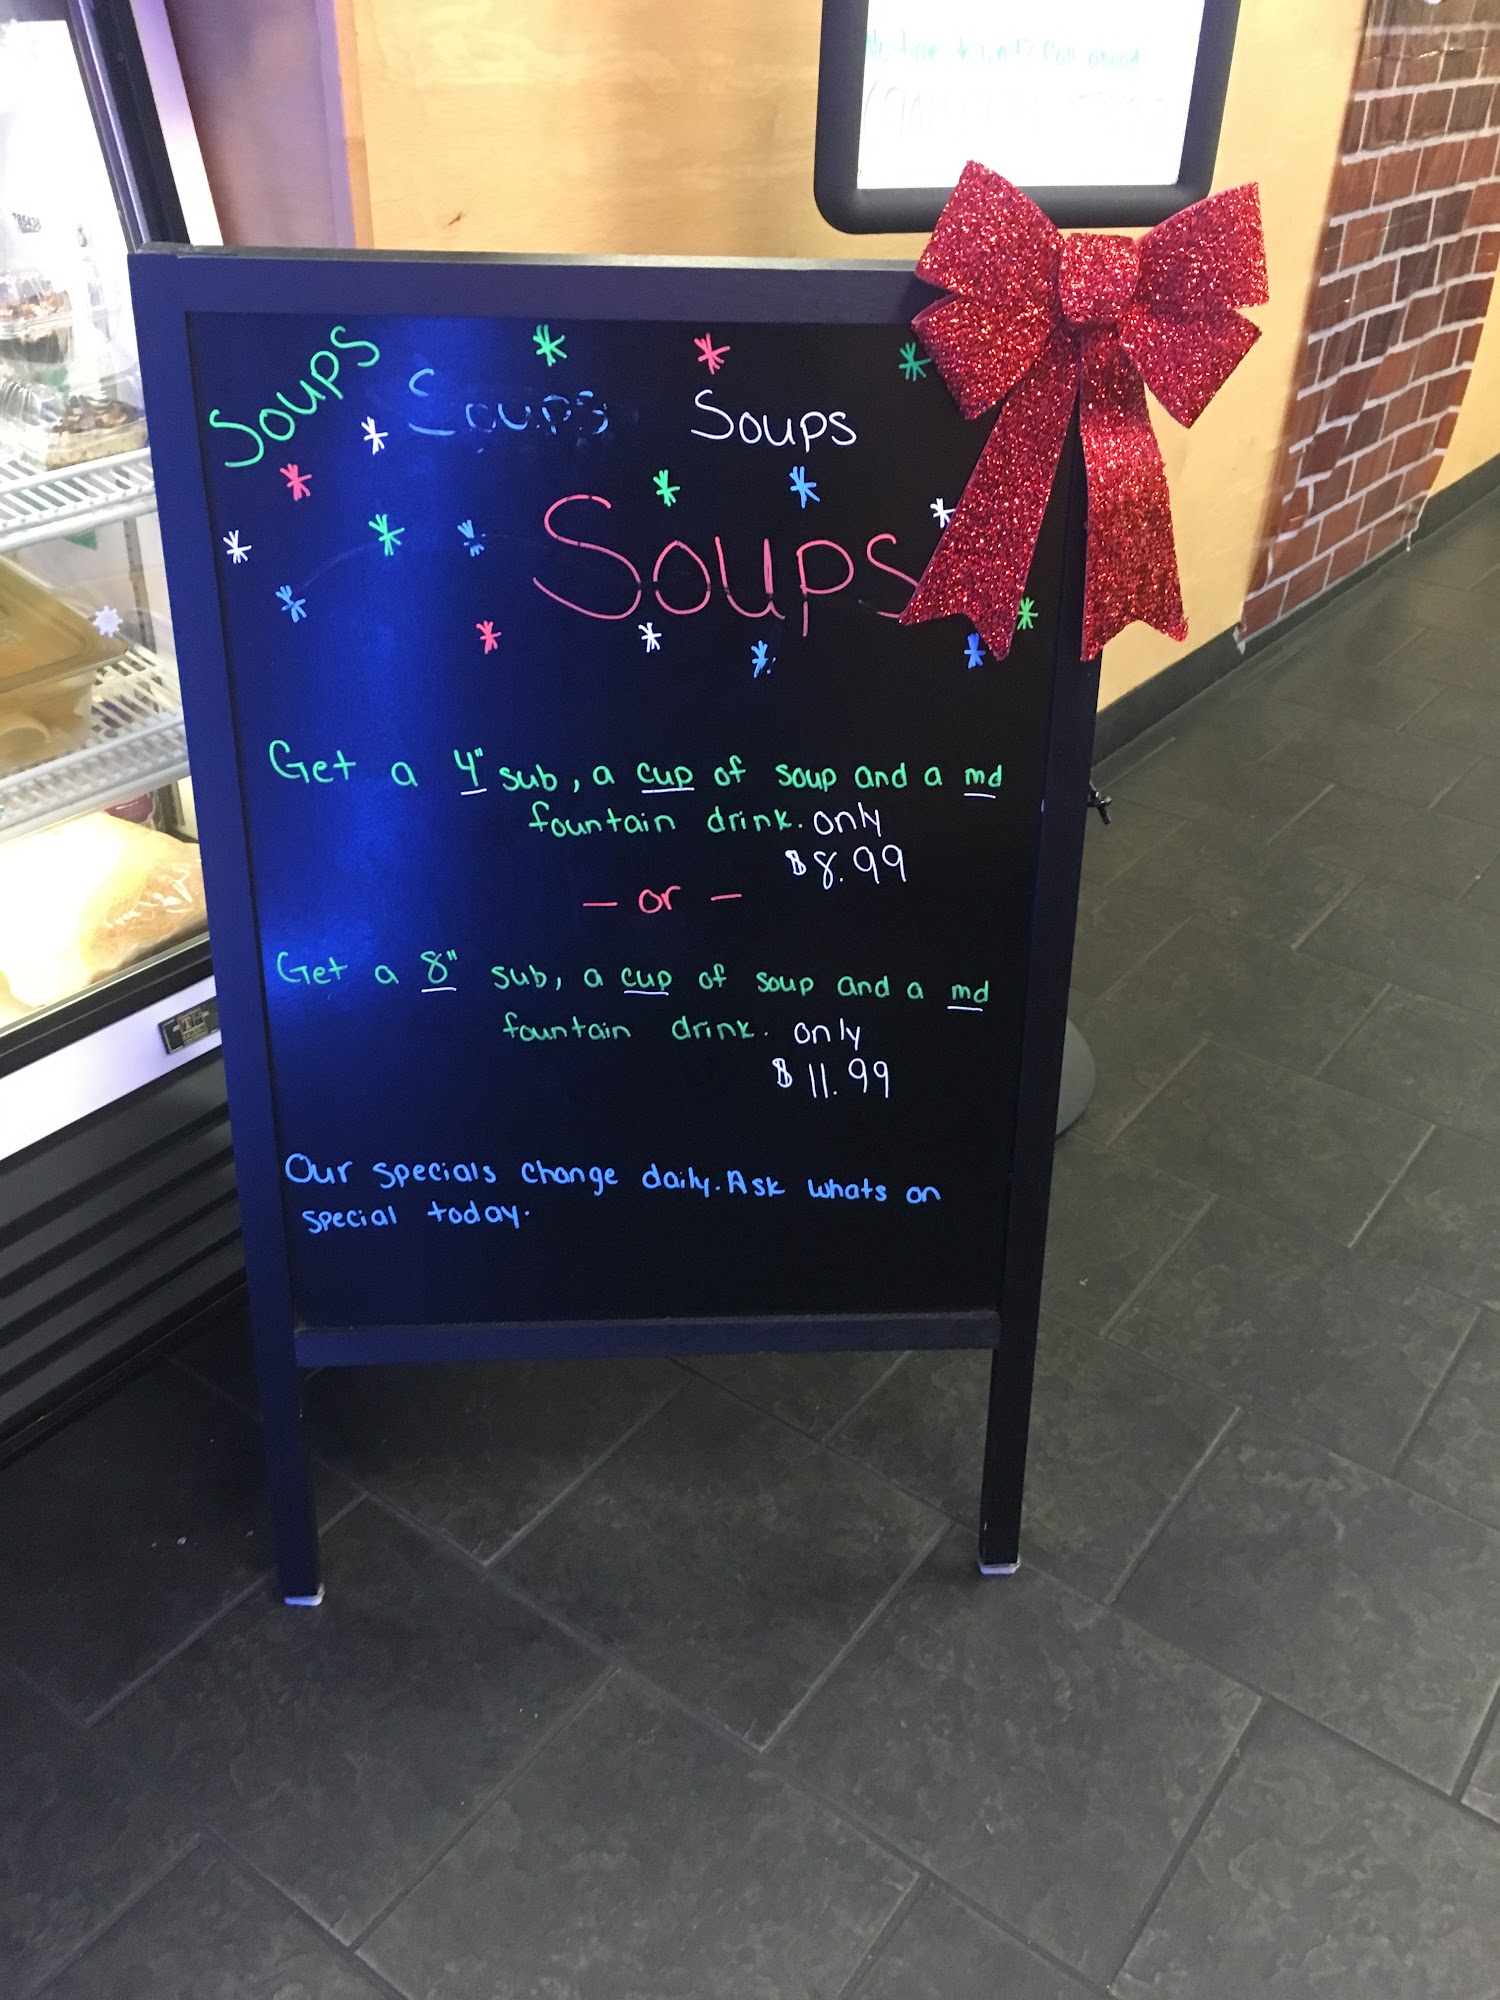 No time to wait? Call ahead
Soups
Soups
Soups
Soups
Get a 4" sub, a cup of soup and a md
fountain drink. only
$8.99
- or -
Get a 8" sub, a cup of soup and a md
fountain drink. only
$11.99
Our specials change daily. Ask whats on
special today.